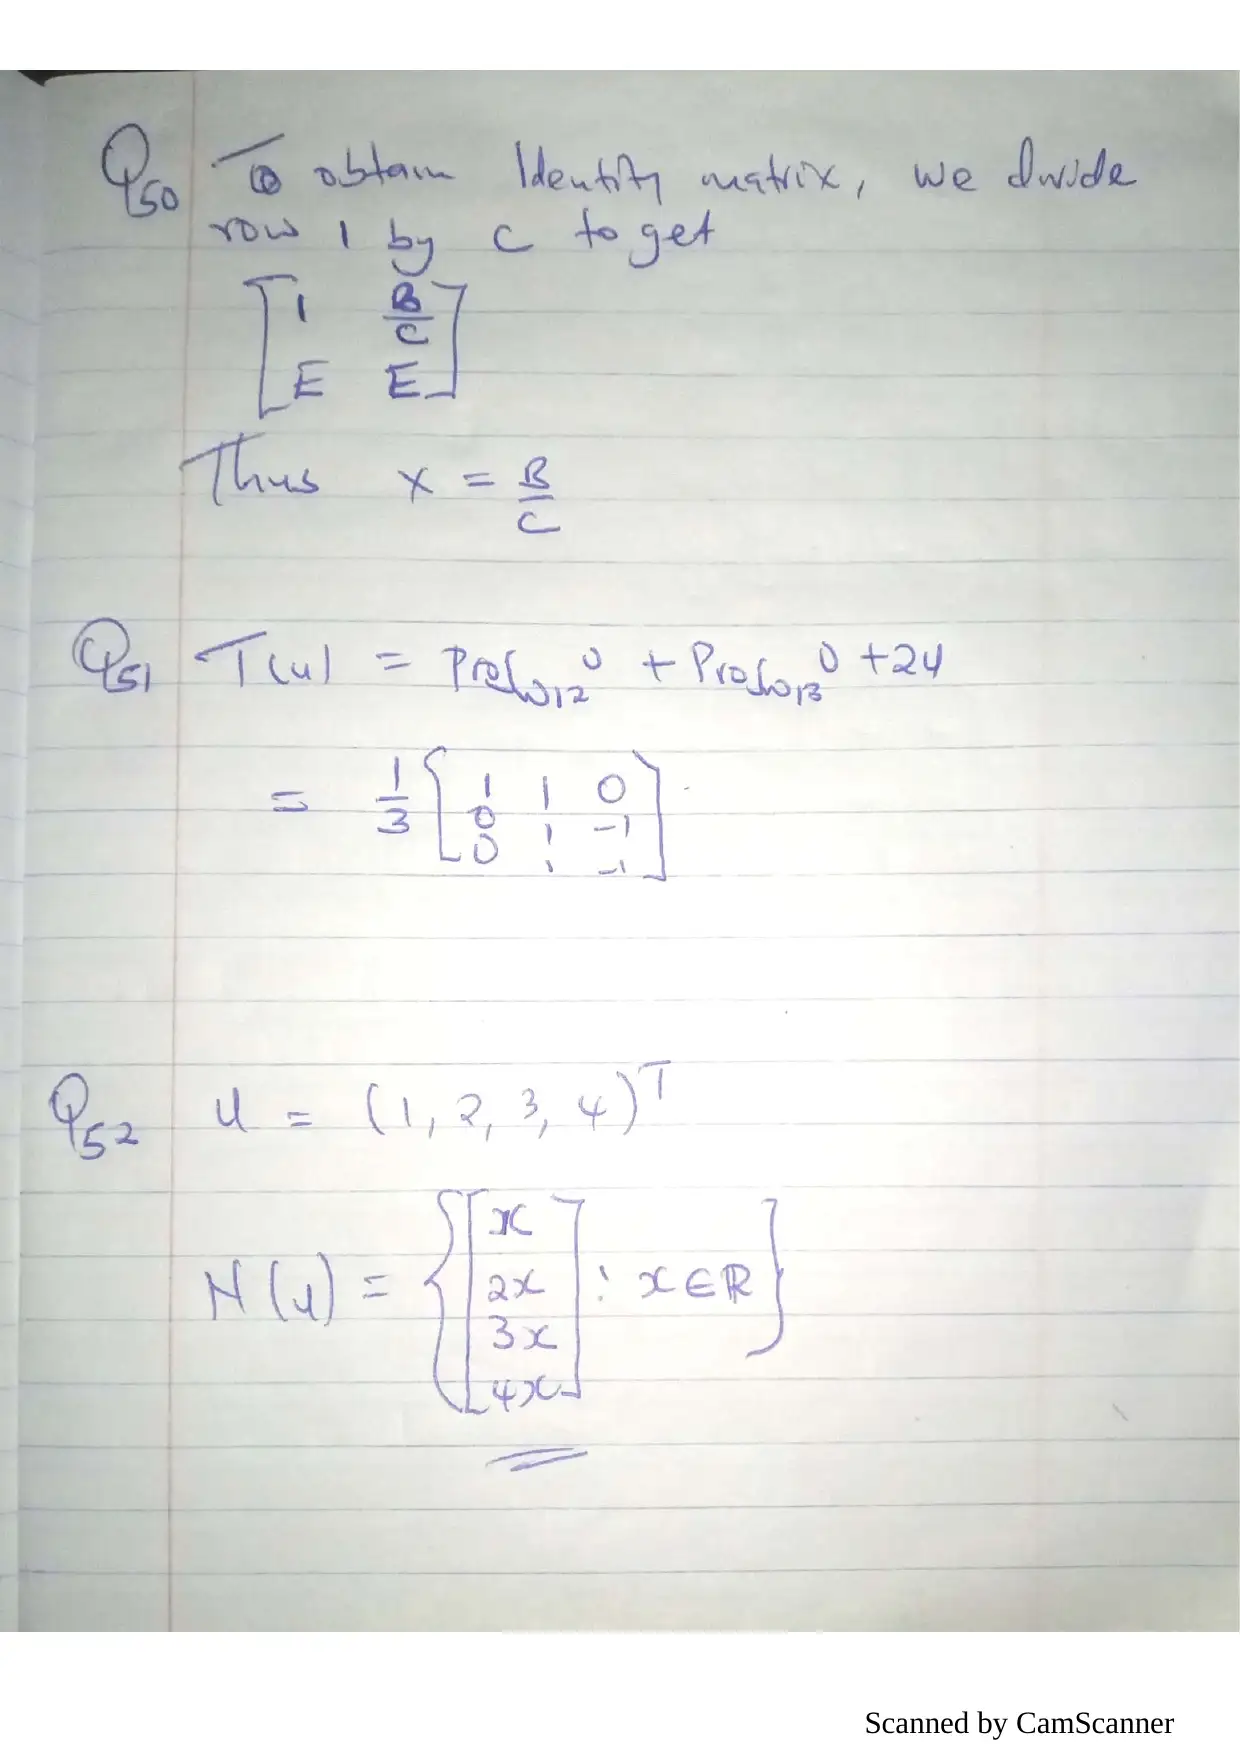 Q50 To obtain Identity matrix, we divide
row 1 by C to get
[1 B/C
E E]
Thus x = B/C
Q51 T(u) = Proj w12 U + Proj w13 U + 24
= 1/3 [1 1 0
0 1 -1
0 1 -1]
Q52 u = (1, 2, 3, 4)^T
N(u) = {[x
2x
3x
4x] : x ∈ ℝ}
Scanned by CamScanner